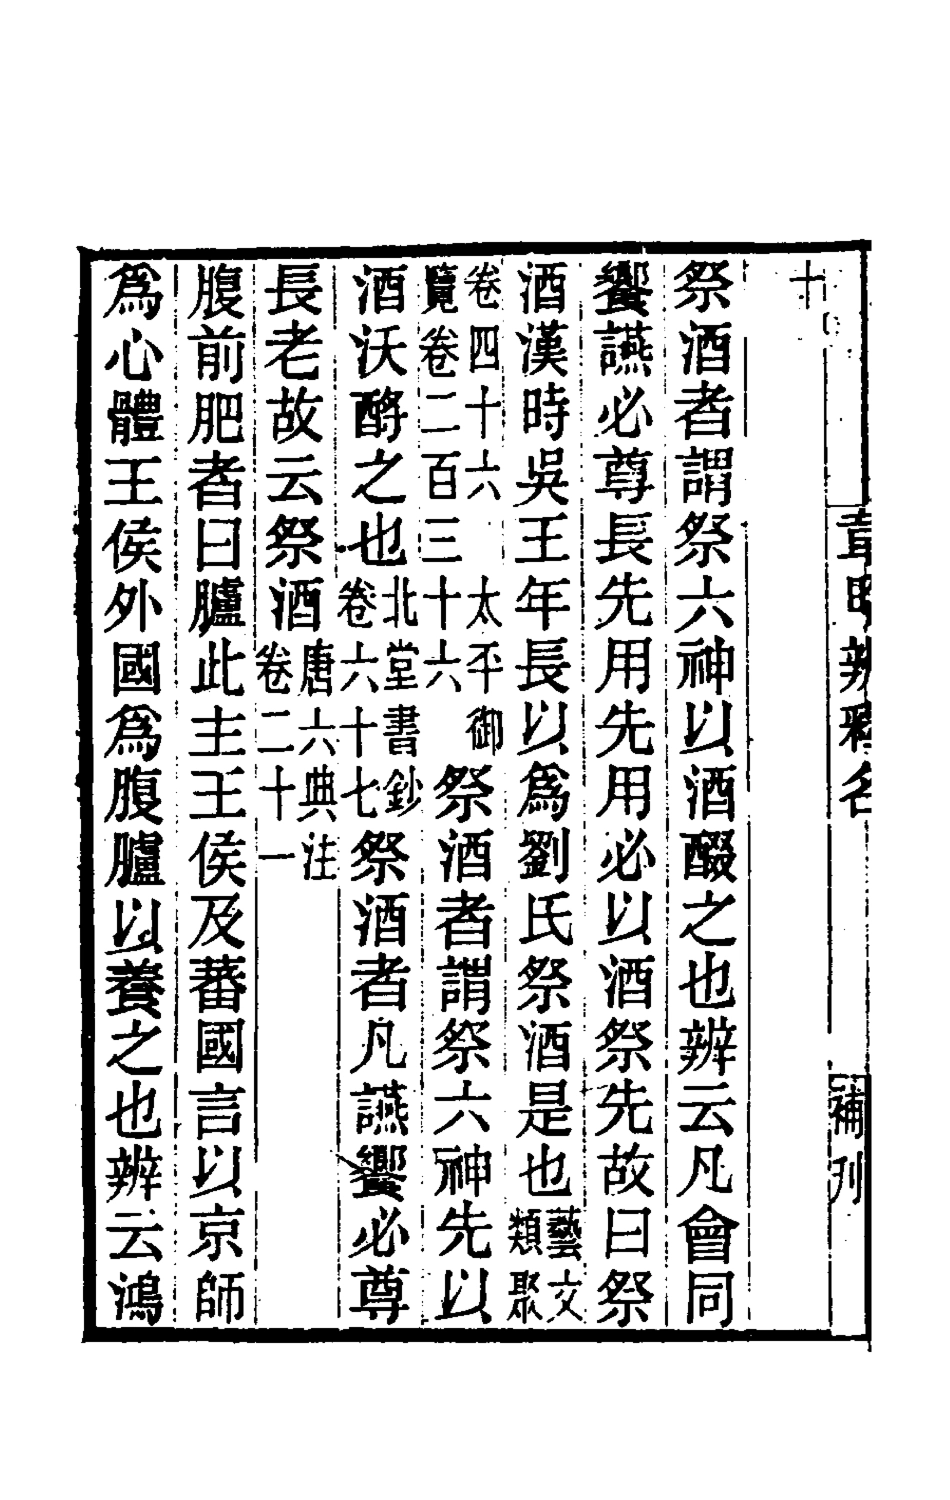 十
祭酒者謂祭六神以酒醊之也辨云凡會同
饗讌必尊長先用先用必以酒祭先故曰祭
酒漢時吳王年長以為劉氏祭酒是也藝文類聚
卷四十六　太平御覽卷二百三十六　祭酒者謂祭六神先以
酒沃酹之也北堂書鈔卷六十七祭酒者凡讌饗必尊
長老故云祭酒唐六典注卷二十一
腹前肥者曰臚此主王侯及蕃國言以京師
為心體王侯外國為腹臚以養之也辨云鴻
韋昭辨釋名
補刊